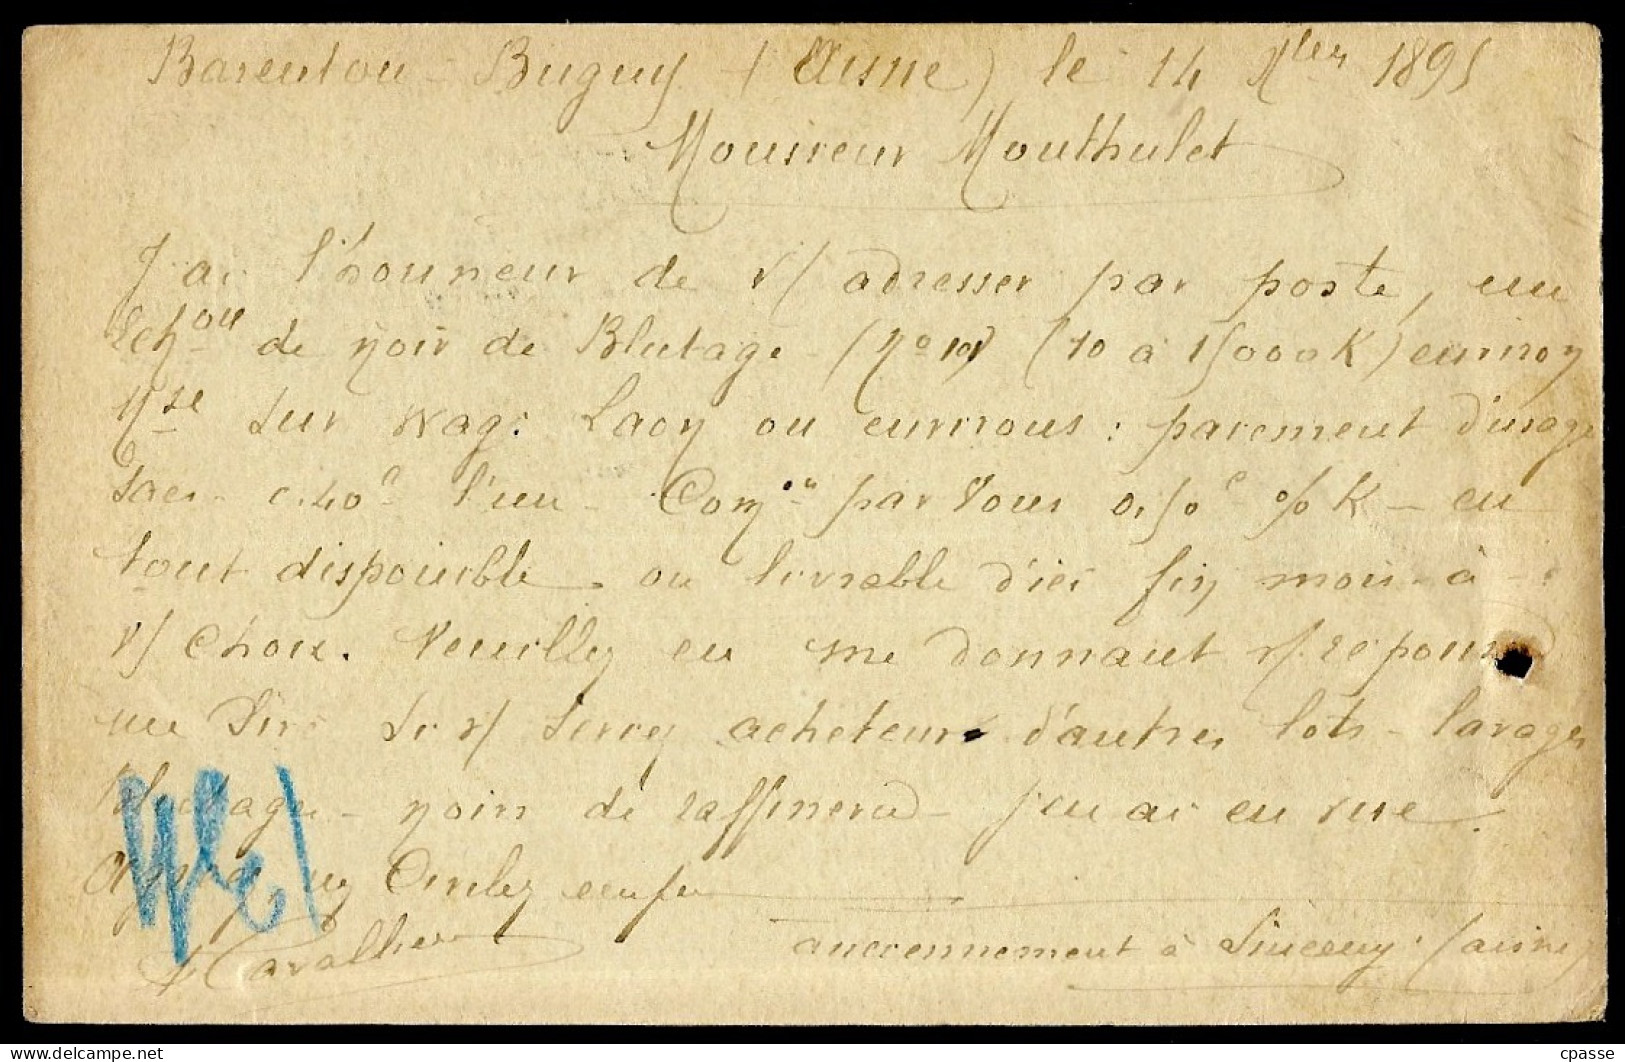 Barenton-Bugny (Aisne) le 14 1895
Monsieur Monthulet
J'ai l'honneur de v/ adresser par poste, un
Echon de noir de Blutage (10 à 15000 K) environ
sur wag. Laon ou environs : paiement d'usage
Sacs 0.40c l'un - Comon par vous 0,50c % K - en
tout disponible ou livrable d'ici fin mois à
v/ choix. Veuillez en me donnant v/ réponse
me dire si v/ seriez acheteur d'autres lots - lavages
Blutages - noirs de raffinerie - j'en ai en vue.
Agréez, mes civilités
Cavallier
anciennement à Sinceny (Aisne)
cpasse